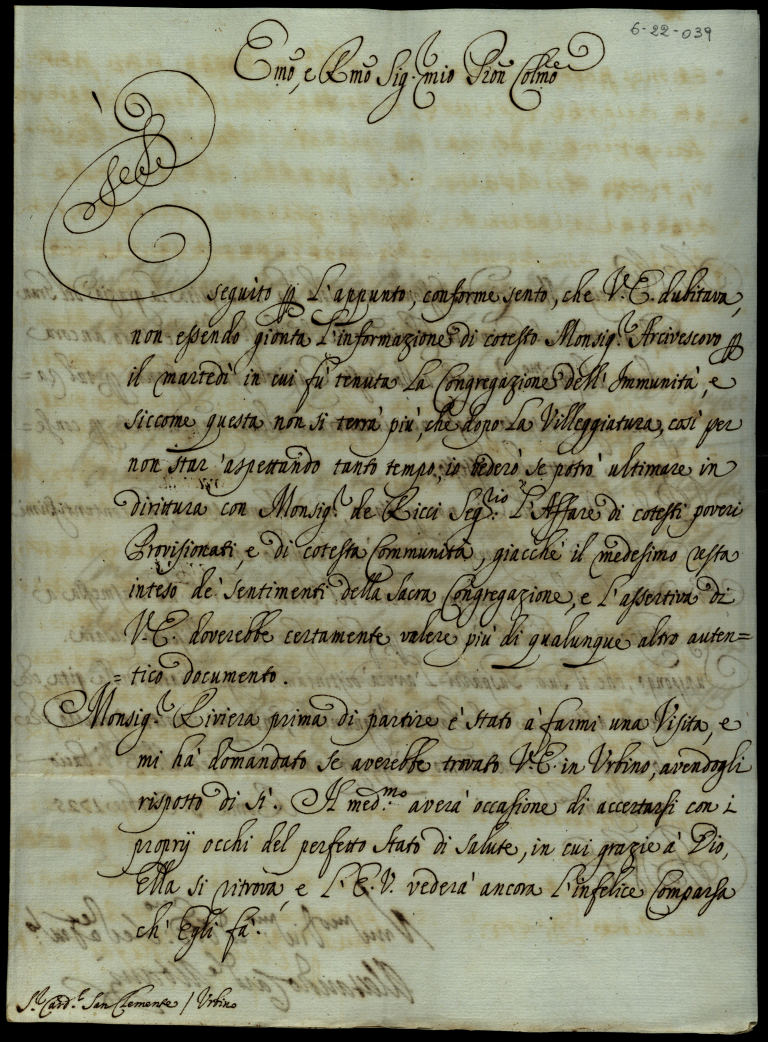 6-22-039
Emo, e Rmo Sig.r mio Pron Colmo
È
seguito p l'appunto, conforme sento, che V. E. dubitava,
non essendo gionta l'informazione di cotesto Monsig.r Arcivescovo p
il martedì in cui fù tenuta la Congregazione dell'Immunità, e
siccome questa non si terrà più, che dopo la Villeggiatura, così per
non star'aspettando tanto tempo, io vederò se potrò ultimare in
dirittura con Monsig.r de Ricci Seg.rio l'Affare di cotesti poveri
Provisionati, e di cotesta Communità, giacche il medesimo resta
inteso de' sentimenti della Sacra Congregazione, e l'assertiva di
V. E. doverebbe certamente valere più di qualunque altro auten=
=tico documento.
Monsig.r Riviera prima di partire è stato à farmi una Visita, e
mi hà domandato se averebbe trovato V. E. in Urbino, avendogli
risposto di sì. Il med.mo averà occasione di accertarsi con i
proprij occhi del perfetto stato di salute, in cui grazie à Dio,
Ella si ritrova, e l'E. V. vederà ancora l'infelice Comparsa
ch'Egli fà.
S.r Card.l San Clemente / Urbino